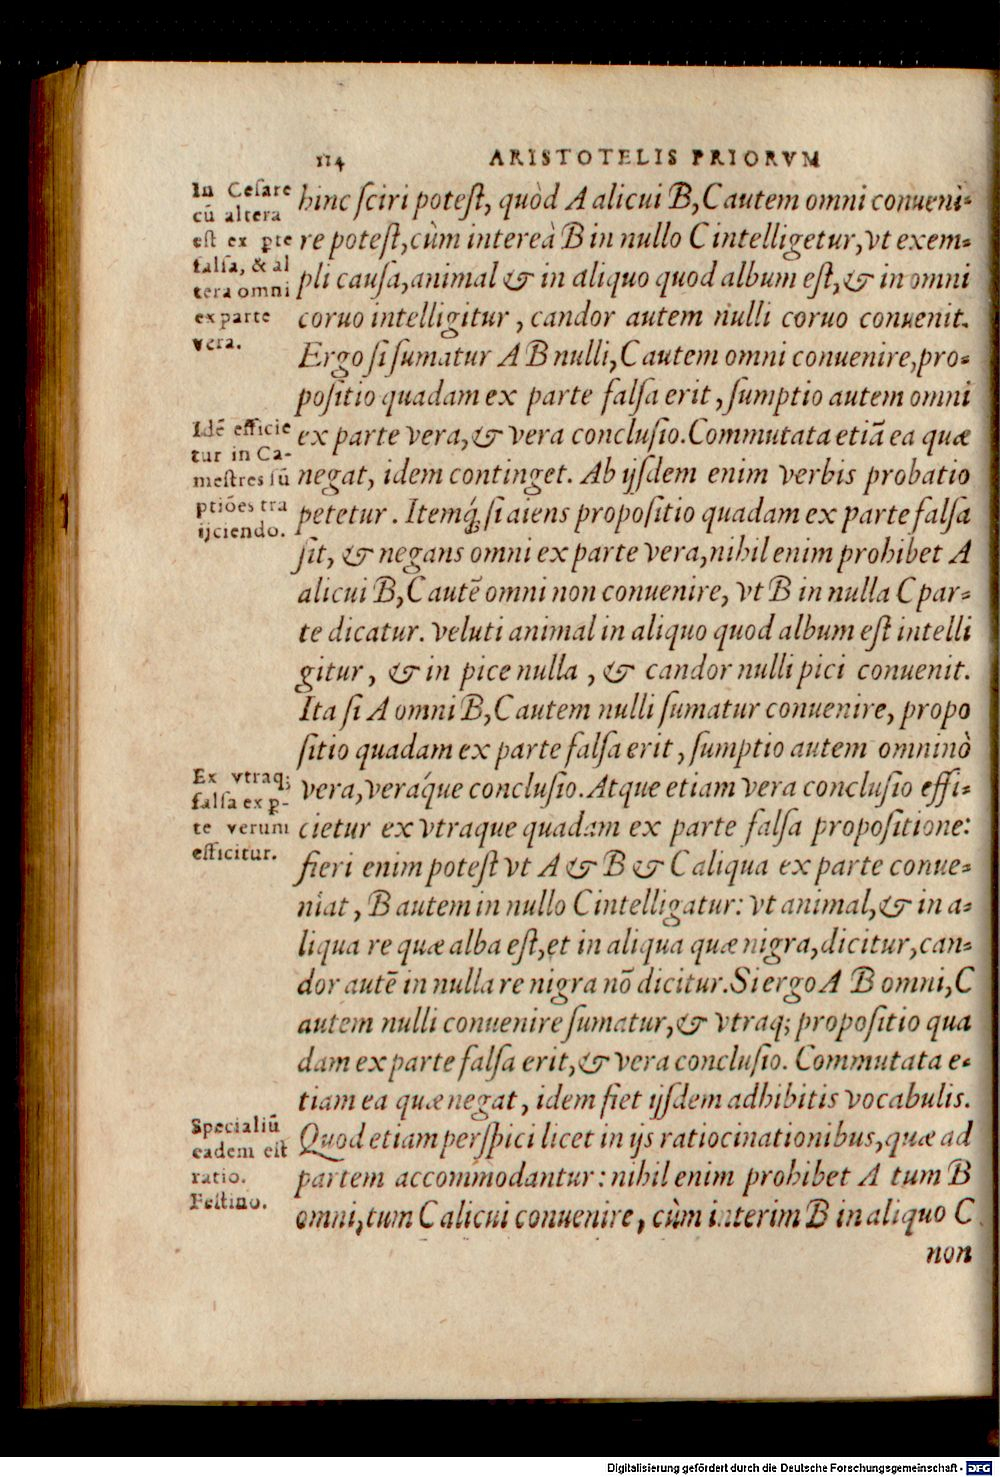 114 ARISTOTELIS PRIORVM
In Cesare
cū altera
est ex pte
falsa, & al
tera omni
ex parte
vera.
hinc sciri potest, quòd A alicui B, C autem omni conueni-
re potest, cùm intereà B in nullo C intelligetur, vt exem-
pli causa, animal & in aliquo quod album est, & in omni
coruo intelligitur, candor autem nulli coruo conuenit.
Ergo si sumatur A B nulli, C autem omni conuenire, pro-
positio quadam ex parte falsa erit, sumptio autem omni
Idē efficie
tur in Ca-
mestres sū
ptiões tra
ijciendo.
ex parte vera, & vera conclusio. Commutata etiā ea quæ
negat, idem continget. Ab ijsdem enim verbis probatio
petetur. Itemq́; si aiens propositio quadam ex parte falsa
sit, & negans omni ex parte vera, nihil enim prohibet A
alicui B, C autē omni non conuenire, vt B in nulla C par-
te dicatur. Veluti animal in aliquo quod album est intelli
gitur, & in pice nulla, & candor nulli pici conuenit.
Ita si A omni B, C autem nulli sumatur conuenire, propo
sitio quadam ex parte falsa erit, sumptio autem omninò
Ex vtraq;
falsa ex p-
te verum
efficitur.
vera, veráque conclusio. Atque etiam vera conclusio effi-
cietur ex vtraque quadam ex parte falsa propositione:
fieri enim potest vt A & B & C aliqua ex parte conue-
niat, B autem in nullo C intelligatur: vt animal, & in a-
liqua re quæ alba est, et in aliqua quæ nigra, dicitur, can-
dor autē in nulla re nigra nō dicitur. Si ergo A B omni, C
autem nulli conuenire sumatur, & vtraq; propositio qua
dam ex parte falsa erit, & vera conclusio. Commutata e-
tiam ea quæ negat, idem fiet ijsdem adhibitis vocabulis.
Specialiū
eadem est
ratio.
Festino.
Quod etiam perspici licet in ijs ratiocinationibus, quæ ad
partem accommodantur: nihil enim prohibet A tum B
omni, tum C alicui conuenire, cùm interim B in aliquo C
non
Digitalisierung gefördert durch die Deutsche Forschungsgemeinschaft - DFG